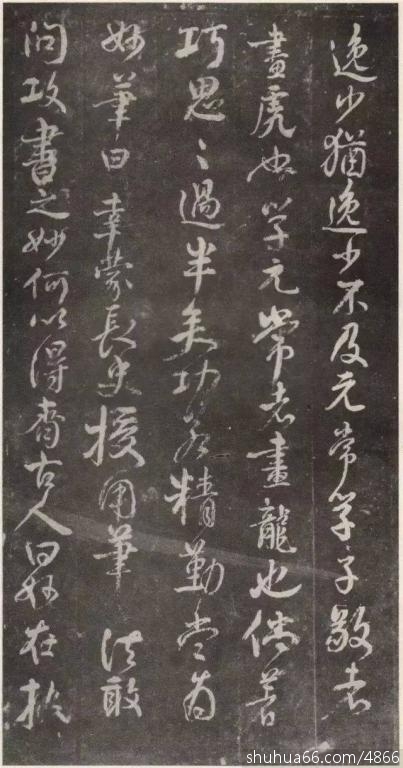 逸少猶逸少不及元常學子敬者
畫虎也學元常者畫龍也倘著
巧思思過半矣功若精勤當為
妙筆曰幸蒙長史授用筆法敢
問攻書之妙何以得齊古人曰妙在執
shuhua66.com/4866